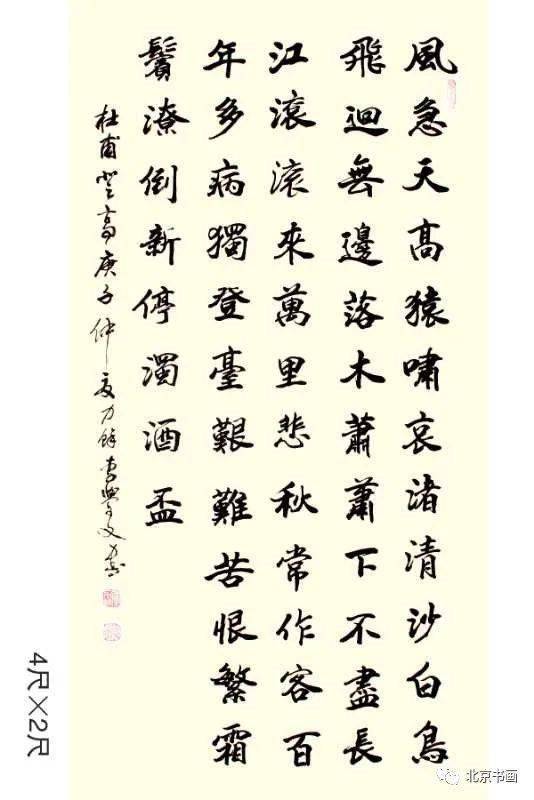 風急天髙猿嘯哀渚清沙白鳥
飛迴無邊落木蕭蕭下不盡長
江滾滾來萬里悲秋常作客百
年多病獨登臺艱難苦恨繁霜
鬢潦倒新停濁酒盃
杜甫登高庚子仲夏
4尺×2尺
北京书画